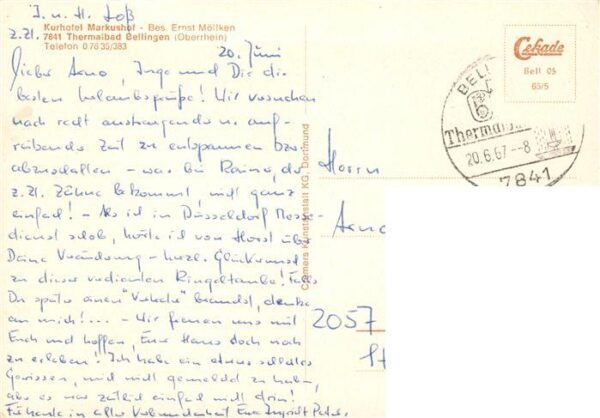 I. u. H. Loß
z. Zt.
Kurhotel Markushof - Bes. Ernst Möllken
7841 Thermalbad Bellingen (Oberrhein)
Telefon 07635/383
20. Juni
Lieber Arno, Inge und Dir die
besten Urlaubsgrüße! Wir versuchen
nach recht anstrengender u. auf-
reibende Zeit zu entspannen bzw.
abzuschalten - was bei Rainer, da
z. Zt. Zähne bekommt, nicht ganz
einfach! - Als ich in Düsseldorf Messe-
dienst schob, hörte ich von Horst über
Deine Veränderung - herzl. Glückwunsch
zu dieser verdienten Ringeltaube! Falls
Du später einen "Verkäufer" brauchst, denke
an mich!... - Wir freuen uns mit
Euch und hoffen, Euer Haus doch noch
zu erleben! Ich habe ein etwas schlechtes
Gewissen, mich nicht gemeldet zu haben,
aber es war zeitlich einfach nicht drin!
in alter Verbundenheit Eure Ingrid Peter
Cramers Kunstanstalt KG, Dortmund
Cekade
Bell 05
65/5
BELL
Thermal
20.6.67.--8
7841
Herrn
Arno
2057